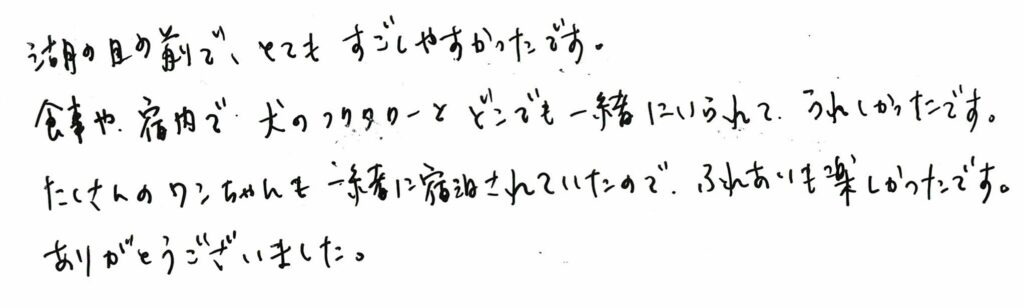 湖の目の前で、とても すごしやすかったです。
食事や、宿内で 犬の フクタローと どこでも 一緒 にいられて、うれしかったです。
たくさんの ワンちゃんも 一緒に宿泊されていたので、ふれあいも 楽しかったです。
ありがとうございました。